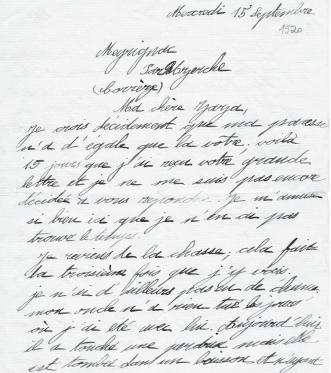 Mercredi 15 Septembre
1920
Meyrignac
par Uzerche
(Corrèze)
Ma chère Zaza,
Je crois décidément que ma paresse
n'a d'égale que la vôtre; voilà
15 jours que j'ai reçu votre grande
lettre et je ne me suis pas encore
décidée à vous répondre. Je m'amuse
si bien ici que je n'en ai pas
trouvé le temps.
Je reviens de la chasse; cela fait
la troisième fois que j'y vais.
je n'ai d'ailleurs pas eu de chance,
mon oncle n'a rien tué les jours
où j'ai été avec lui. Aujourd'hui
il a touché une perdrix mais elle
est tombée dans un buisson et n'ayant